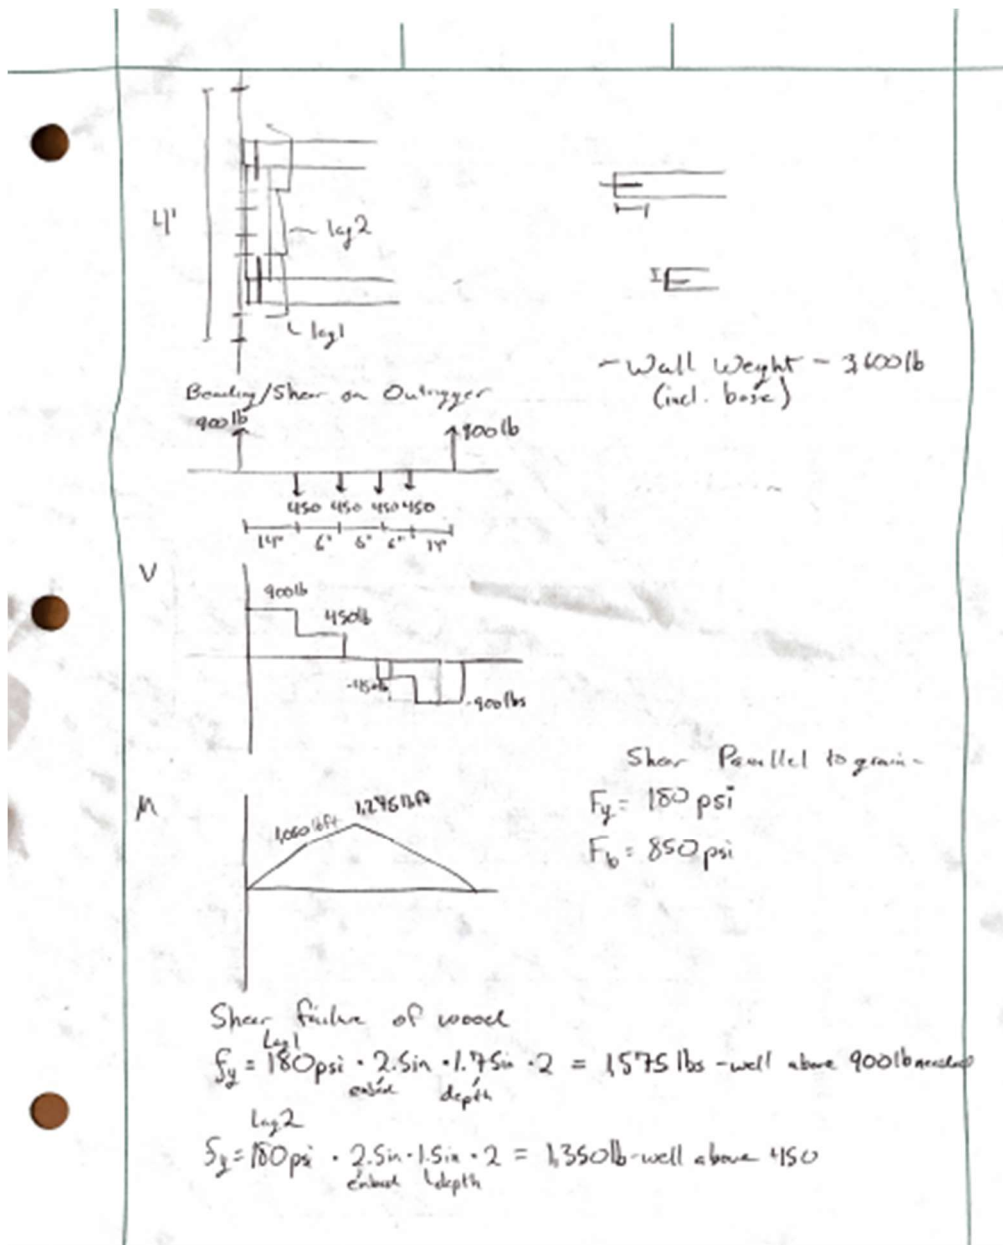 4'
lag2
lag1
- Wall Weight - 3,600lb
(incl. base)
Bending/Shear on Outrigger
900lb
900lb
450 450 450 450
14" 6" 6" 6" 14"
V
900lb
450lb
-450lb
-900lbs
Shear Parallel to grain -
Fy = 180 psi
Fb = 850 psi
M
1,050 lbft
1,275 lbft
Shear failure of wood
Lag1
fy = 180psi · 2.5in · 1.75in · 2 = 1,575 lbs - well above 900lb needed
embed depth
Lag2
fy = 180psi · 2.5in · 1.5in · 2 = 1,350lb - well above 450
embed depth